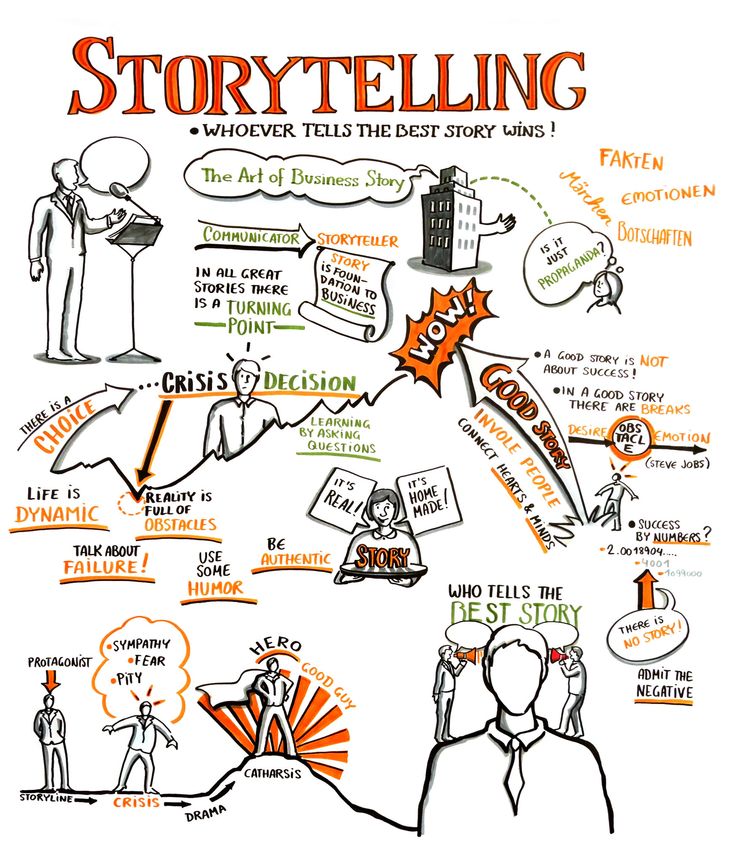 STORYTELLING
• WHOEVER TELLS THE BEST STORY WINS!
The Art of Business Story
FAKTEN
Märchen
EMOTIONEN
BOTSCHAFTEN
IS IT
JUST
PROPAGANDA?
COMMUNICATOR STORYTELLER
STORY
IS FOUN-
DATION TO
BUSINESS
IN ALL GREAT
STORIES THERE
IS A TURNING
POINT
WOW!
THERE IS A
CHOICE
... CRISIS DECISION
LEARNING
BY ASKING
QUESTIONS
GOOD STORY
INVOLE PEOPLE
CONNECT HEARTS & MINDS
• A GOOD STORY IS NOT
ABOUT SUCCESS!
• IN A GOOD STORY
THERE ARE BREAKS
DESIRE
OBS
TACL
E
EMOTION
(STEVE JOBS)
LIFE IS
DYNAMIC
REALITY IS
FULL OF
OBSTACLES
IT'S
REAL!
IT'S
HOME
MADE!
STORY
• SUCCESS
BY NUMBERS?
-2.0018904.....
-4001
-1099000
TALK ABOUT
FAILURE!
USE
SOME
HUMOR
BE
AUTHENTIC
THERE IS
NO STORY!
ADMIT THE
NEGATIVE
WHO TELLS THE
BEST STORY
PROTAGONIST
• SYMPATHY
• FEAR
• PITY
HERO
GOOD GUY
STORYLINE
CRISIS
DRAMA
CATHARSIS